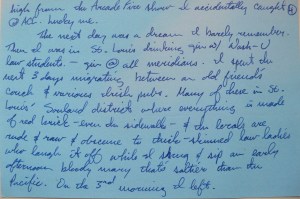 high from the Arcade Fire show I accidentally caught
@ ACL. Lucky me.
The next day was a dream I barely remember.
Then I was in St. Louis drinking gin w/ Wash-U
law students – gin @ all meridians. I spent the
next 3 days migrating between an old friends
couch & various Irish pubs. Many of these in St.
Louis' Soulard district where everything is made
of red brick – even the sidewalks – & the locals are
rude & raw & obscene to thick-skinned law ladies
who laugh it off while I & sip an early
afternoon bloody mary that's saltier than the
Pacific. On the 3rd morning I left.